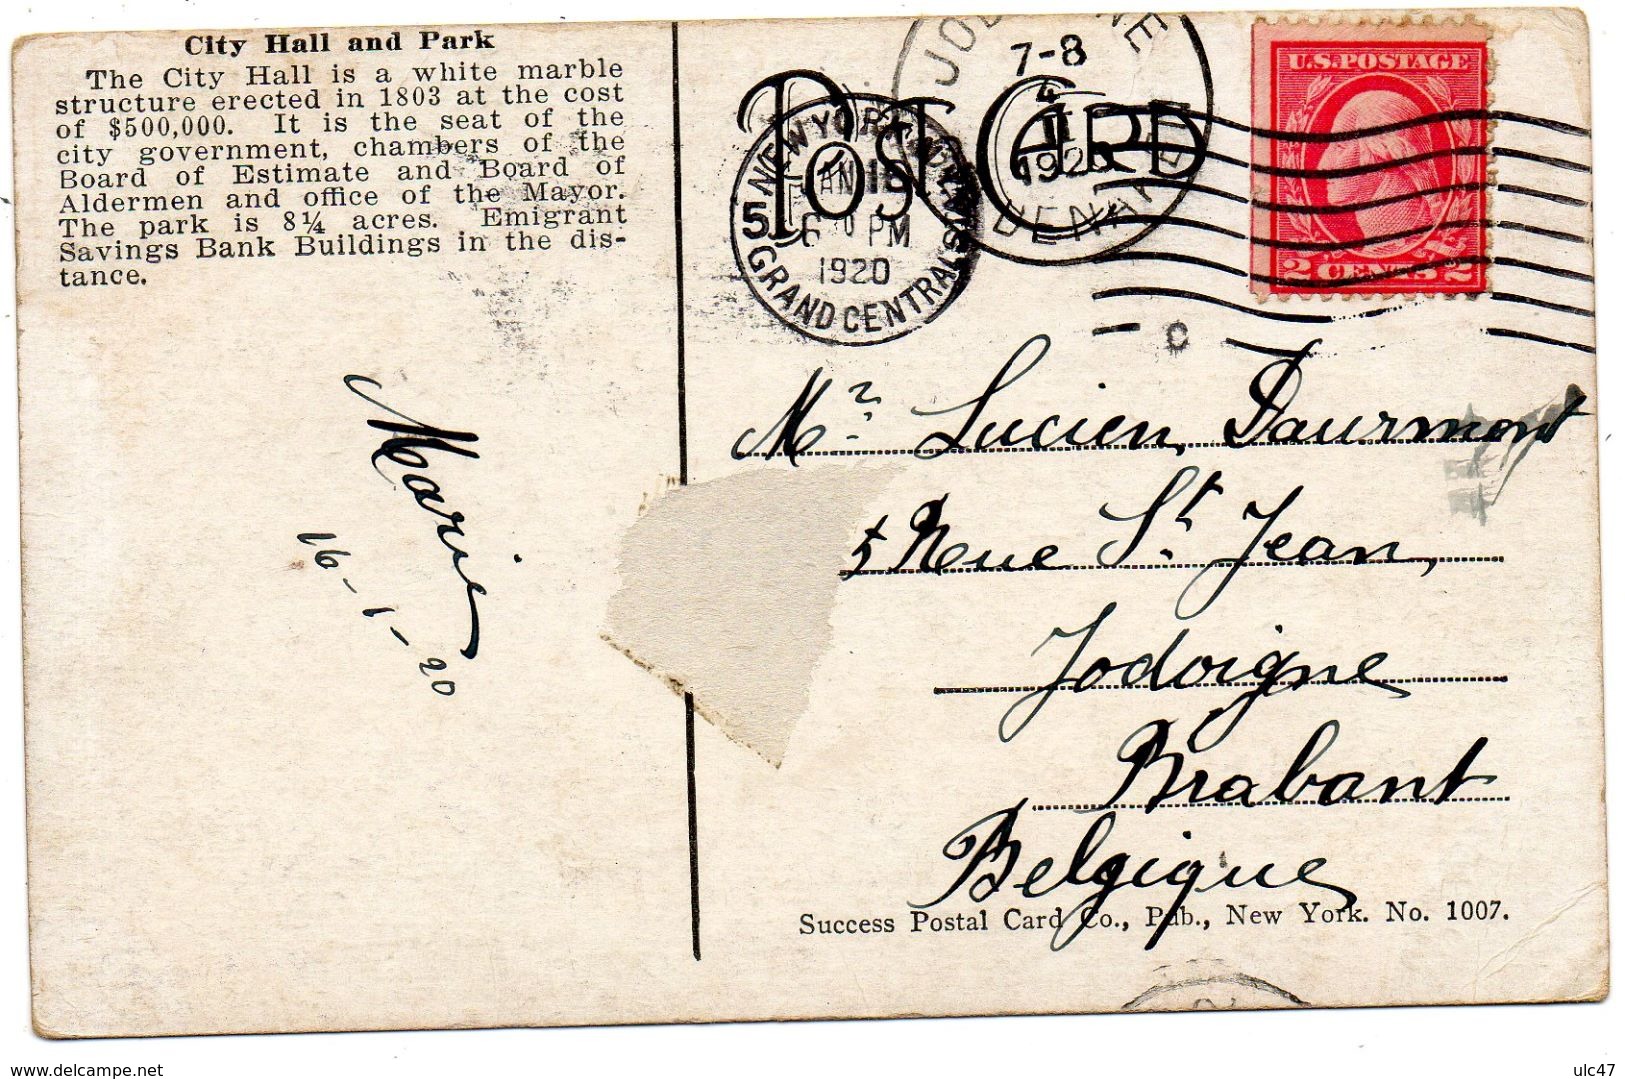 City Hall and Park
The City Hall is a white marble
structure erected in 1803 at the cost
of $500,000. It is the seat of the
city government, chambers of the
Board of Estimate and Board of
Aldermen and office of the Mayor.
The park is 8¼ acres. Emigrant
Savings Bank Buildings in the dis-
tance.
POST CARD
NEW YORK, N.Y.
5
6 PM
1920
GRAND CENTRAL STA.
7-8
4
II
1920
U.S. POSTAGE
2 CENTS 2
Marie
16-1-20
Mr. Lucien, Daurmont
5 Rue St. Jean,
Jodoigne
Brabant
Belgique
Success Postal Card Co., Pub., New York. No. 1007.
delcampe.net
ulc47